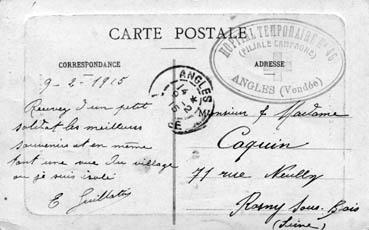 CARTE POSTALE
HOPITAL TEMPORAIRE Nº
(FILIALE CAMPAGNE)
ANGLES (Vendée)
CORRESPONDANCE
ADRESSE
9-2-1915
ANGLES
14 -2
15
Recevez d'un petit
soldat les meilleurs
souvenirs et en même
tant une vue du village
ou je suis isolé
E Guillatos
Monsieur & Madame
Caquin
71 rue Neuilly
Rosny Sous-Bois
(Seine)